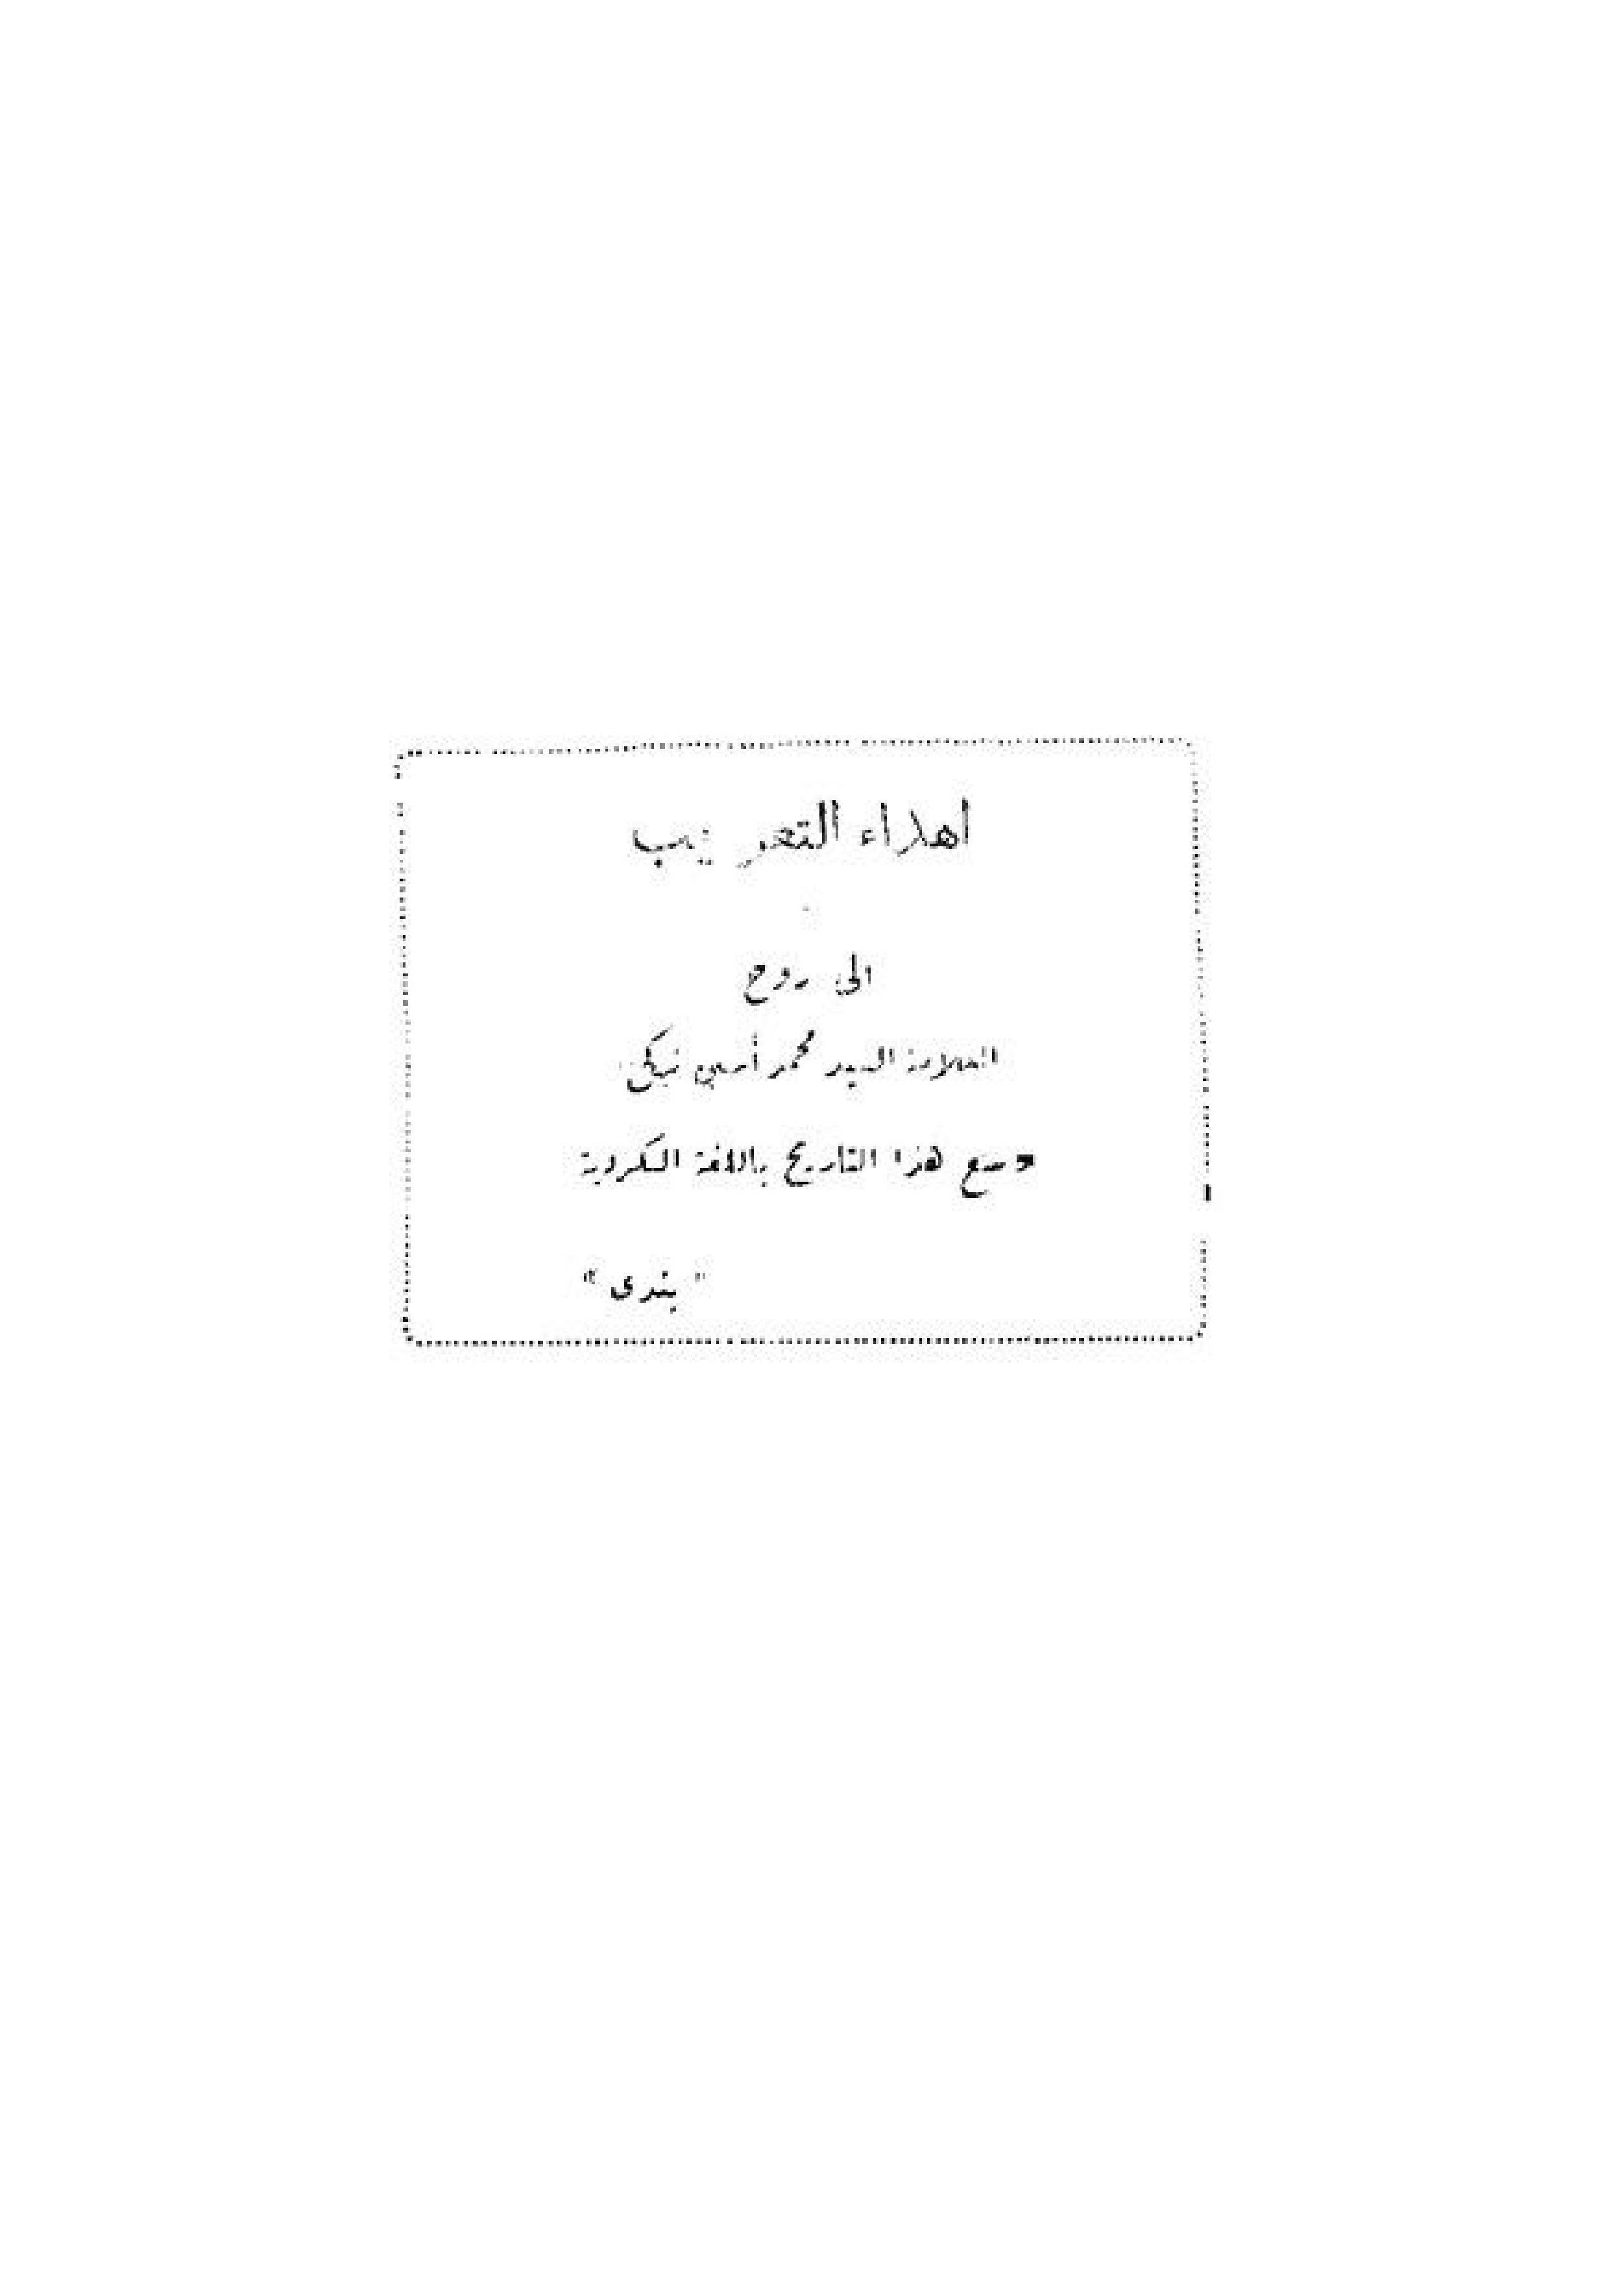 اهداء التعريب
الى روح
العلامة السيد محمد أمين زكى
هذا التاريخ باللغة الكردية
" بندى "